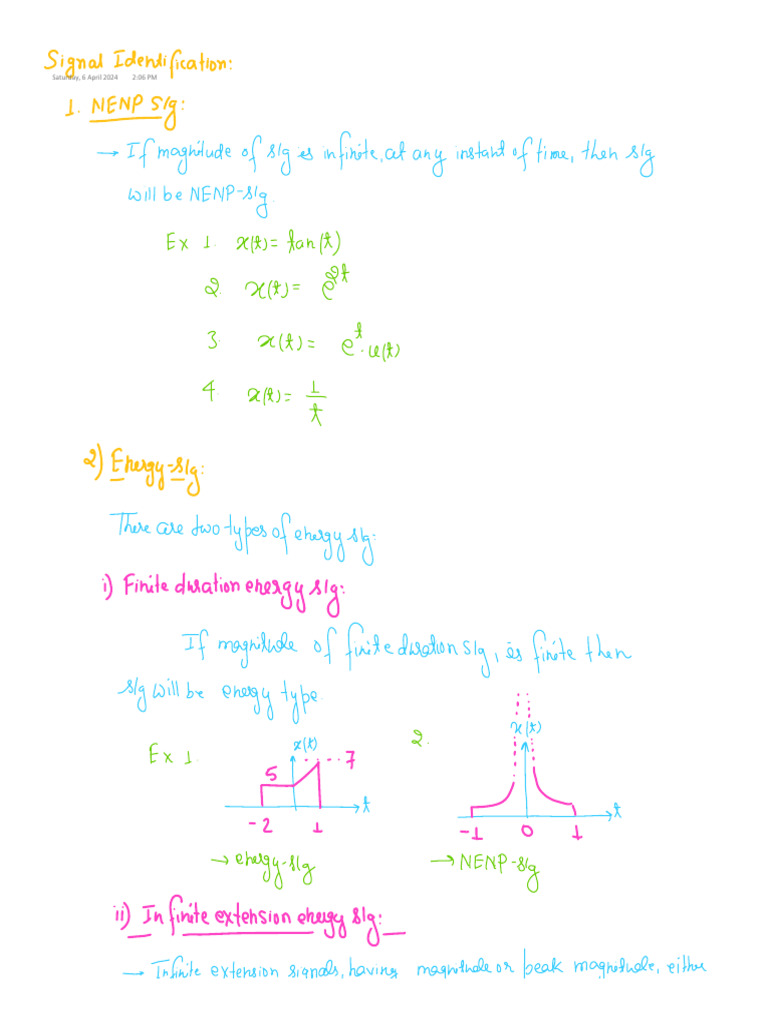 Signal Identification:
Saturday, 6 April 2024 2:06 PM
1. NENP S/g:
→ If magnitude of s/g is infinite, at any instant of time, then s/g
will be NENP-s/g.
Ex 1. x(t) = tan(t)
2. x(t) = e^{2t}
3. x(t) = e^{t}.u(t)
4. x(t) = 1/t
2) Energy-s/g:
There are two types of energy s/g:
i) Finite duration energy s/g:
If magnitude of finite duration s/g, is finite then
s/g will be energy type.
Ex 1. x(t) 5 7 t -2 1
→ energy-s/g
2. x(t) t -1 0 1
→ NENP-s/g
ii) Infinite extension energy s/g:
→ Infinite extension signals, having magnitude or peak magnitude, either